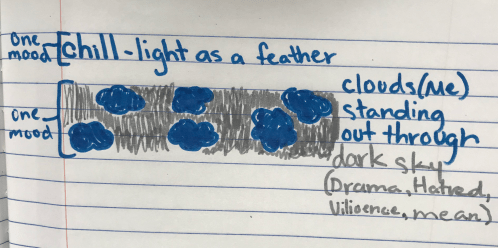 one
mood
chill-light as a feather
one
mood
clouds(Me)
standing
out through
dark sky
(Drama, Hatred,
Vilioence, mean)